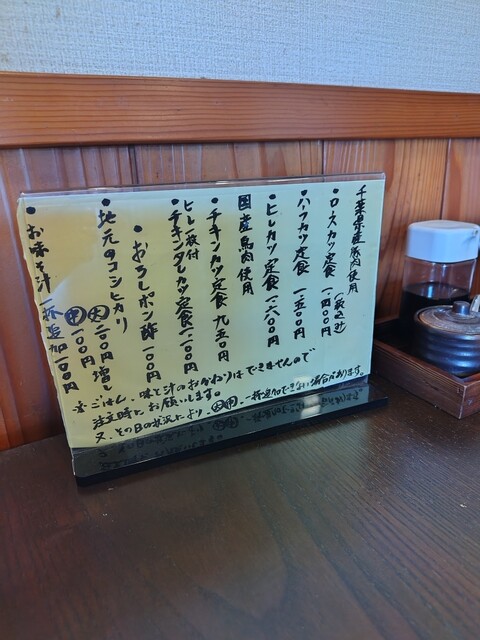 千葉県産豚肉使用
・ロースカツ定食 一四〇〇円 (税込み)
・ハーフカツ定食 一五〇〇円
・ヒレカツ定食 一六〇〇円
国産鳥肉使用
・チキンカツ定食 九五〇円
ヒレ一枚付
・チキンタレカツ定食 一一〇〇円
・おろしポン酢 一〇〇円
・地元のコシヒカリ 大 二〇〇円増し
中 一〇〇円
・お味そ汁 一杯追加 一〇〇円
※ごはん、味そ汁のおかわりはできませんので
注文時にお願いします。
又、その日の状況により、大中、一杯追加できない場合があります。